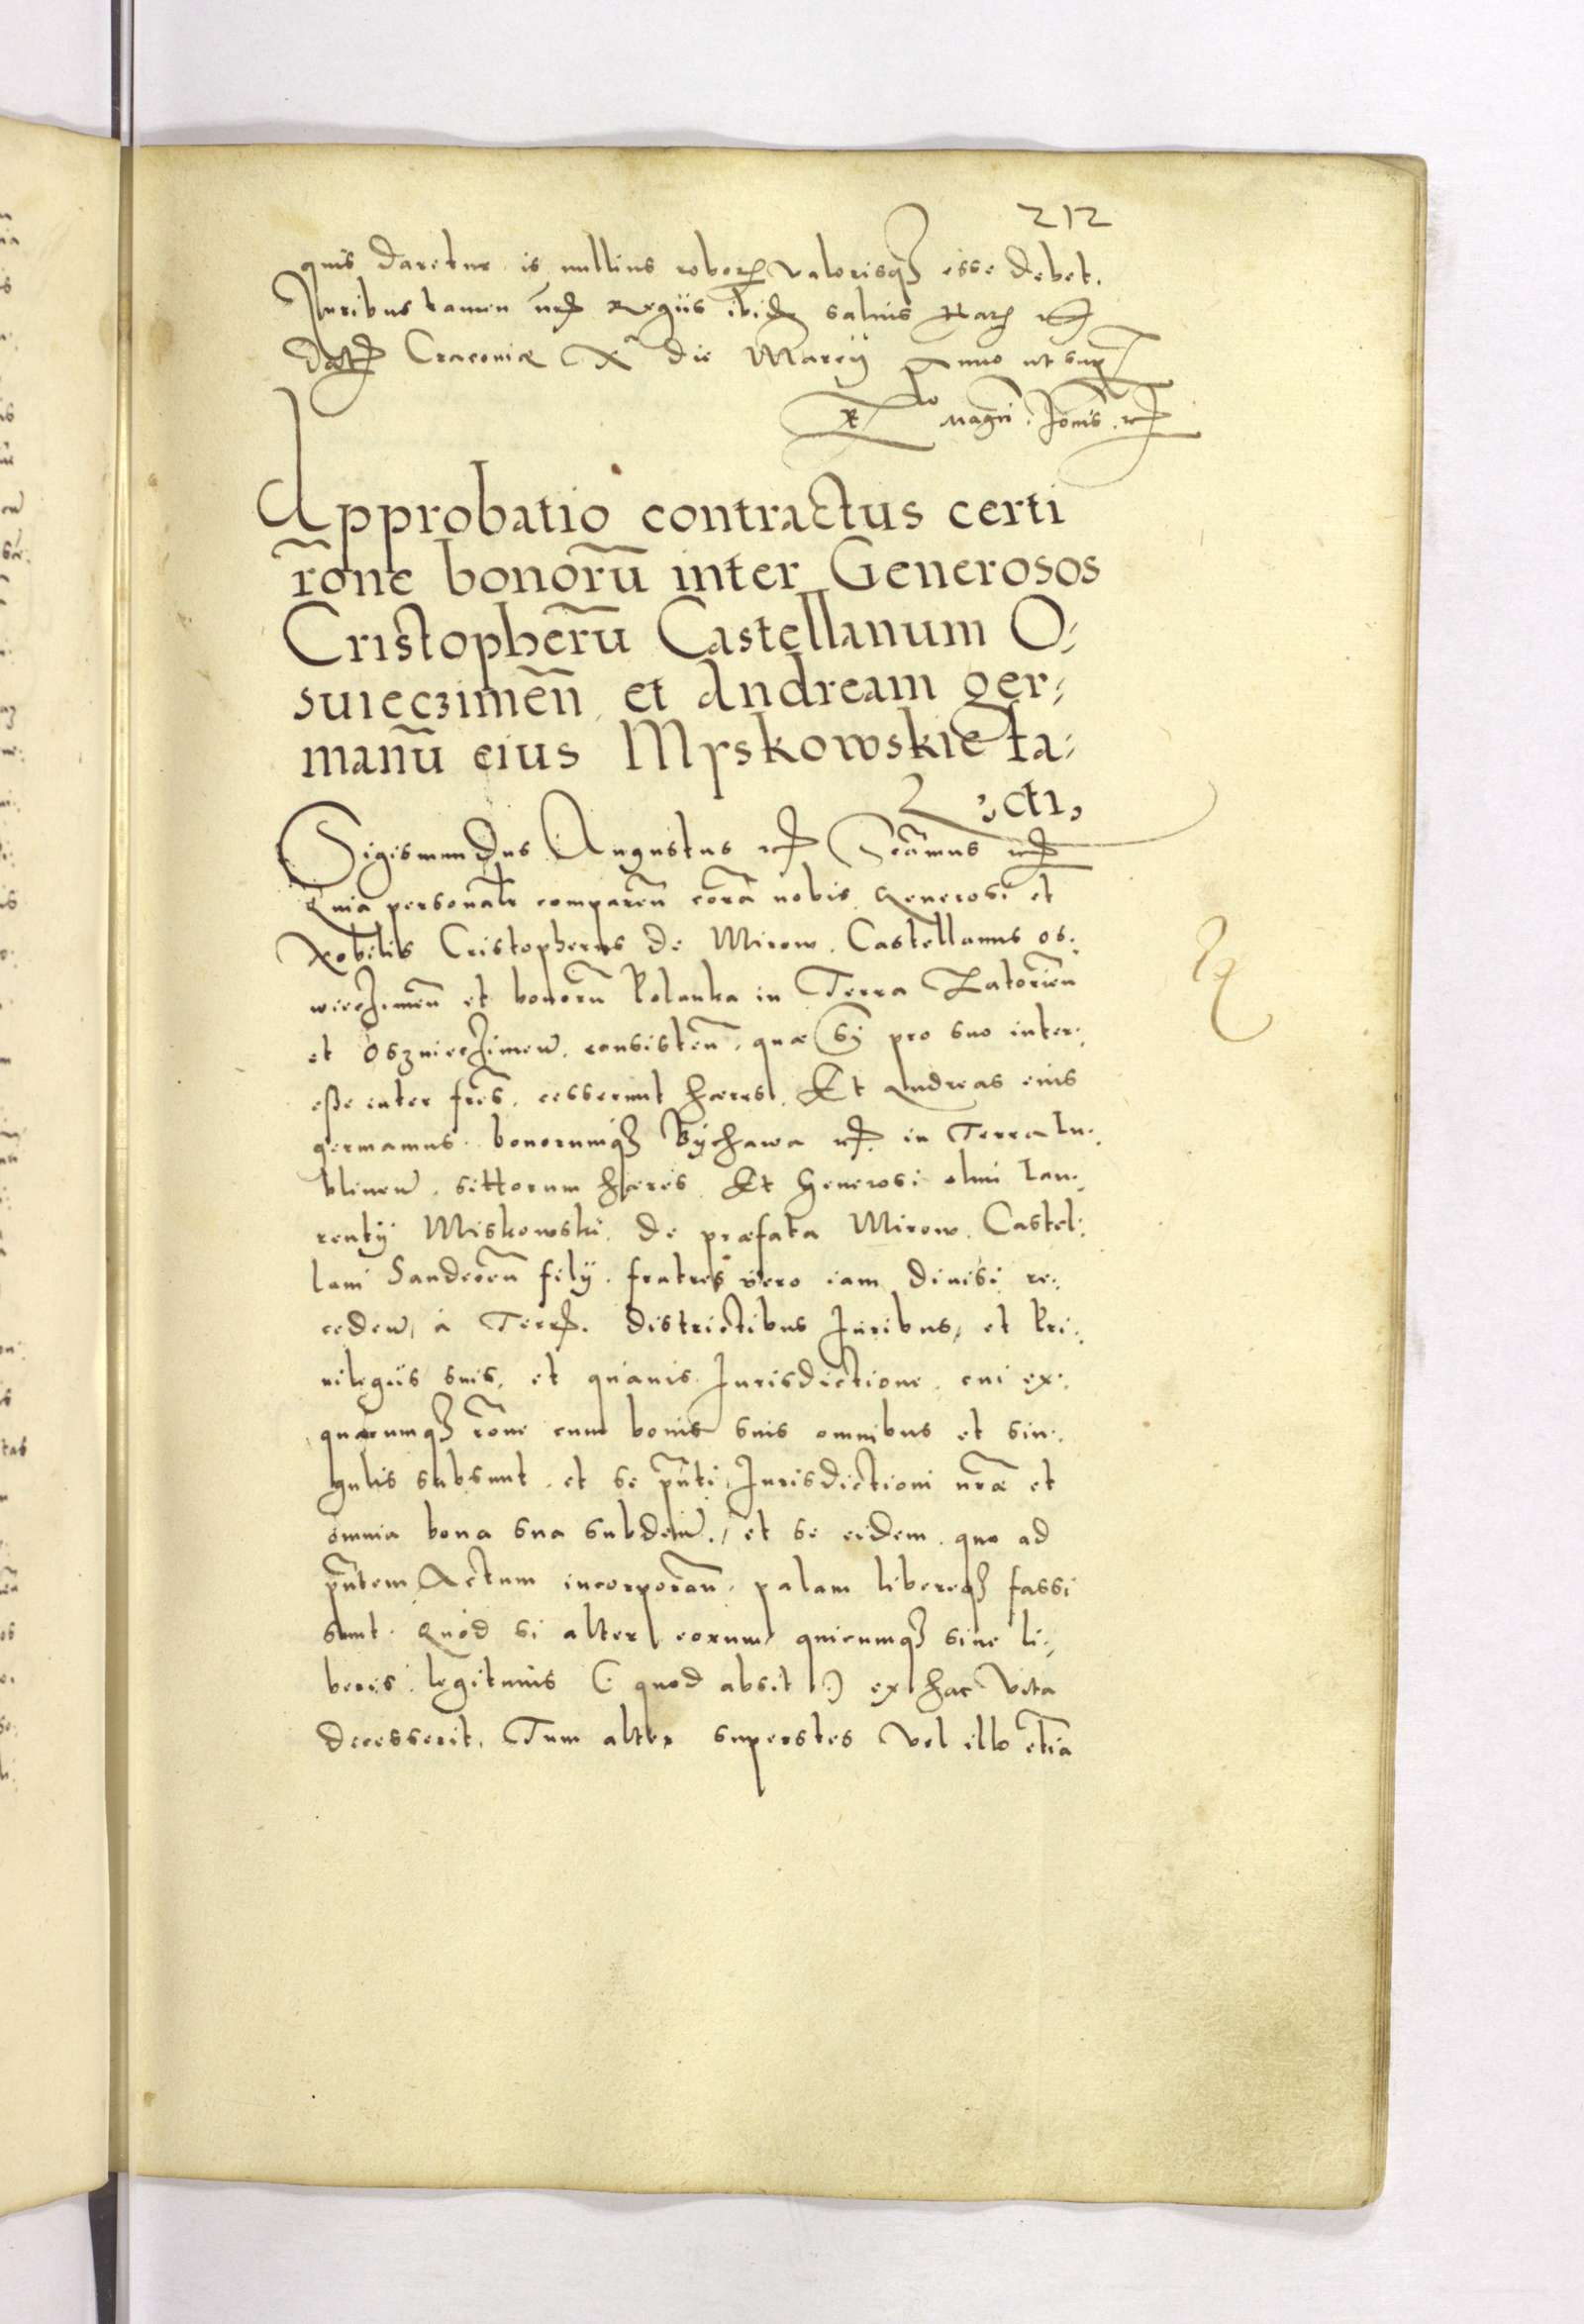 212
quis daretur is nullius roboris valorisq3 esse debet.
Iuribus tamen nr̃is Regiis ibidem saluis
Dat Craconiæ X die Marcÿ Anno ut sup
Rlo Magci Ioñis
Approbatio contractus certi
rõne bonorũ inter Generosos
Cristopherũ Castellanum O⸗
suieczimeñ et Andream ger⸗
manũ eius Myskowskie fa⸗
⸗cti,
Sigismundus Augustus etc Sctãmus etc
Quia personalr̃ compareñ corã nobis Generosi et
Nobilis Cristopherus de Mirow. Castellanus os⸗
wieczimeñ et bonorũ Polanka in Terra Zatorieñ
et Oszwieczimeñ. consisteñ, quæ sj pro suo inter⸗
eße inter fres̃. cesserunt hæres. Et Andreas eius
germanus. bonorumq3 Bÿchawa etc. in Terra lu⸗
blineñ. sittorum hæres. Et Generosi olim Lau⸗
rentÿ Miskowski. de præfata Mirow. Castel⸗
lani Sandeceñ filÿ. fratres vero iam diuisi re⸗
cedeñ, á Terris. districtibus Iuribus, et Pri⸗
uilegiis suis, et quauis Iurisdictione. cui ex⸗
quacumq3 rõne cum bonis suis omnibus et sin⸗
gulis subsunt. et se pñti Iurisdictioni nr̃æ et
omnia bona sua subdeñ., et se eidem. quo ad
pñtem Actum incorporañ. palam libereq3 fassi
sunt. Quód si alter eorum quicumq3 sine li⸗
beris legitimis (: quod absit :) ex hac vita
decesserit. Tum alter superstes vel illo etiã